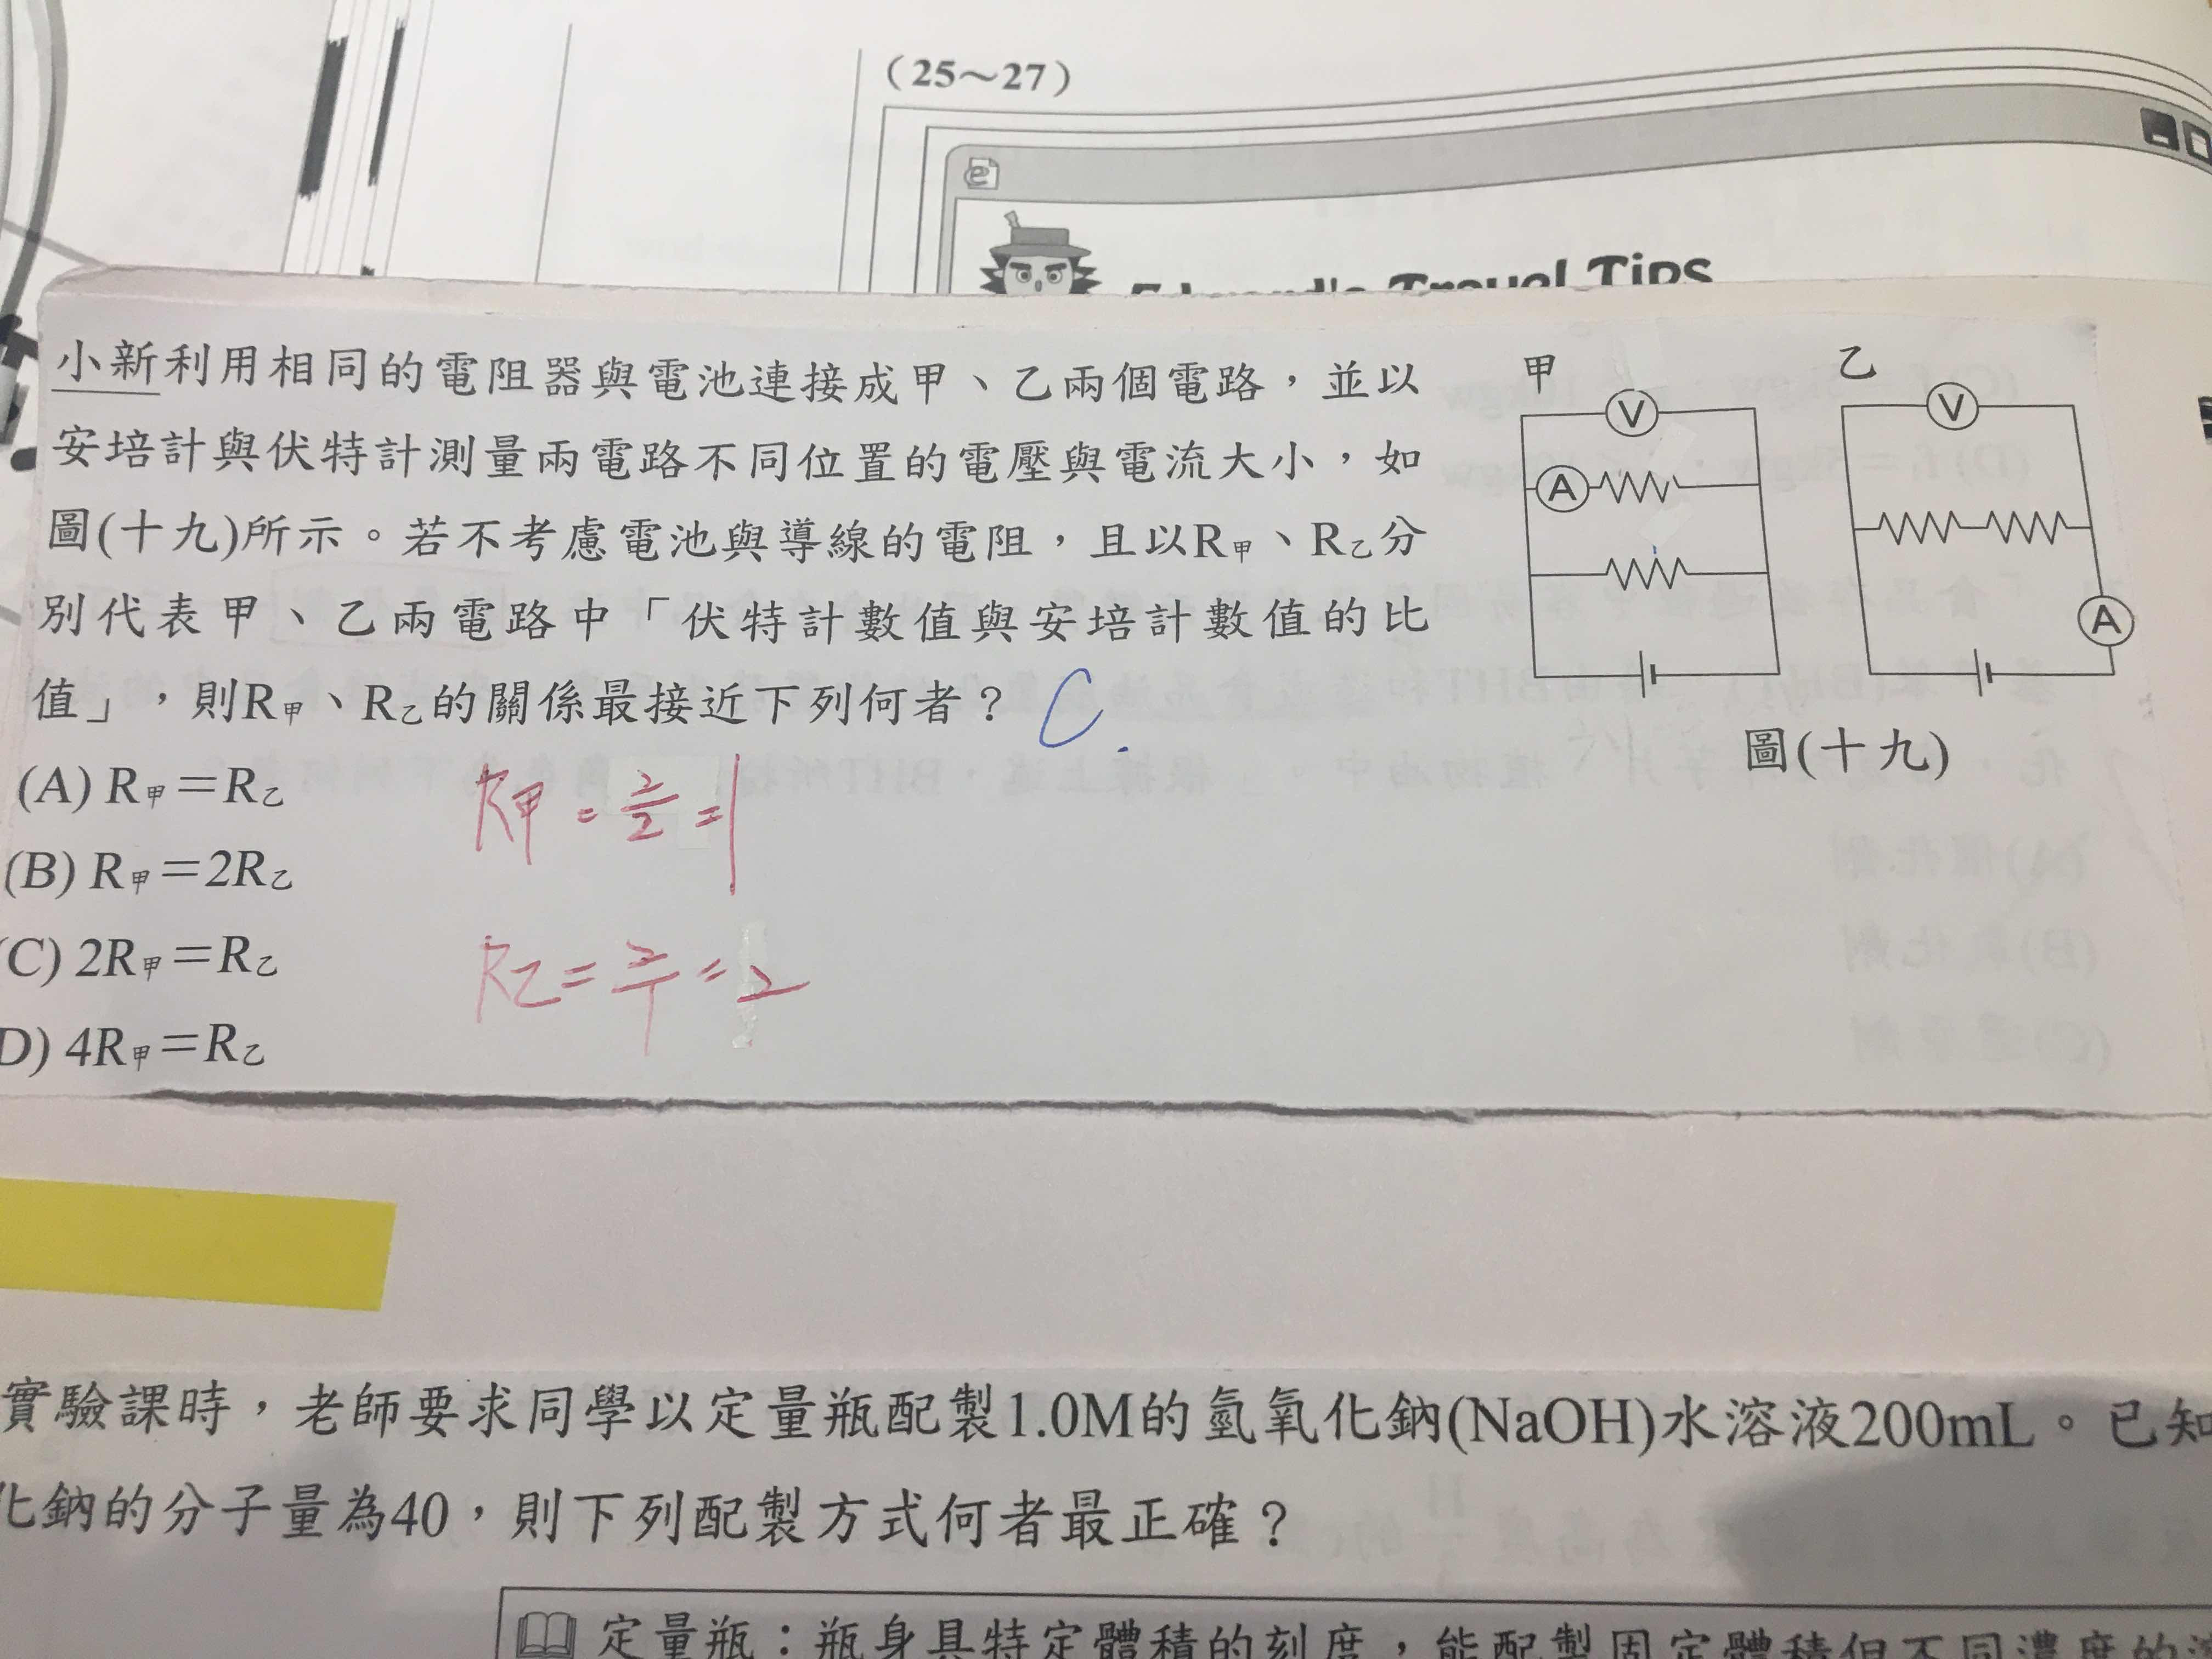 (25～27)
Travel Tips
小新利用相同的電阻器與電池連接成甲、乙兩個電路，並以
安培計與伏特計測量兩電路不同位置的電壓與電流大小，如
圖(十九)所示。若不考慮電池與導線的電阻，且以R甲、R乙分
別代表甲、乙兩電路中「伏特計數值與安培計數值的比
值」，則R甲、R乙的關係最接近下列何者？ C.
(A) R甲＝R乙
(B) R甲＝2R乙
(C) 2R甲＝R乙
D) 4R甲＝R乙
R甲 = 2/2 = 1
R乙 = 2/1 = 2
甲
V
A
乙
V
A
圖(十九)
實驗課時，老師要求同學以定量瓶配製1.0M的氫氧化鈉(NaOH)水溶液200mL。已知
化鈉的分子量為40，則下列配製方式何者最正確？
定量瓶：瓶身具特定體積的刻度，能配製固定體積但不同濃度的